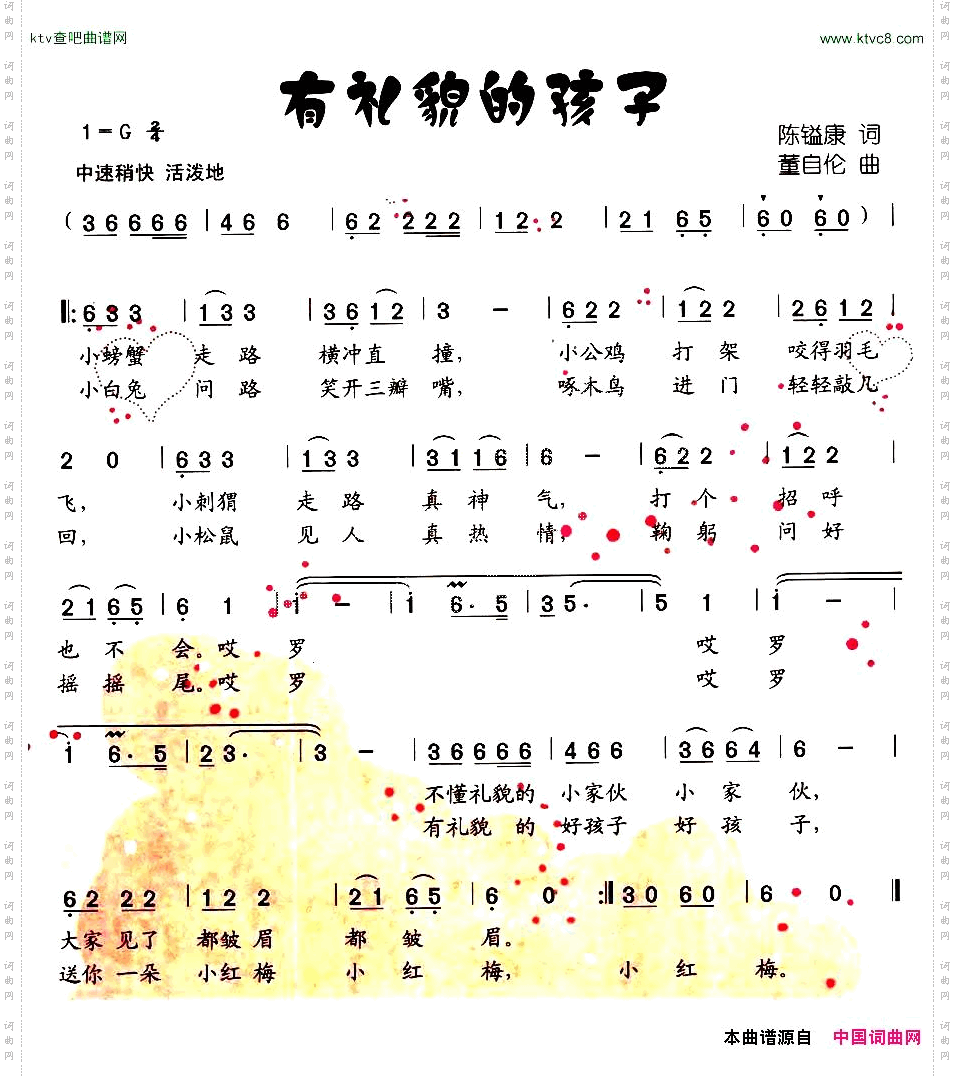 ktv查吧曲谱网 www.ktvc8.com
有礼貌的孩子
1=G
陈镒康 词
中速稍快 活泼地
董自伦 曲
( 3 6 6 6 6 | 4 6 6 6 | 6 2 2 2 2 | 1 2 2 2 | 2 1 6 5 | 6 0 6 0 ) |
‖: 6 3 3 | 1 3 3 3 | 3 6 1 2 | 3 - | 6 2 2 | 1 2 2 2 | 2 6 1 2 |
小螃蟹 走 路 横冲直 撞, 小公鸡 打 架 咬得羽毛
小白兔 问 路 笑开三瓣 嘴, 啄木鸟 进 门 轻轻敲几
2 0 | 6 3 3 | 1 3 3 3 | 3 1 1 6 | 6 - | 6 2 2 2 | 1 2 2 2 |
飞, 小刺猬 走 路 真 神 气, 打 个 招 呼
回, 小松鼠 见 人 真 热 情, 鞠 躬 问 好
2 1 6 5 | 6 1 | i - | i 6· 5 | 3 5· | 5 1 | i - |
也 不 会。哎 罗 哎 罗
摇 摇 尾。哎 罗 哎 罗
i 6· 5 | 2 3· | 3 - | 3 6 6 6 6 | 4 6 6 6 | 3 6 6 4 | 6 - |
不懂礼貌的 小家伙 小 家 伙,
有礼貌 的 好孩子 好 孩 子,
6 2 2 2 | 1 2 2 2 | 2 1 6 5 | 6 0 :‖ 3 0 6 0 | 6 0 ‖
大家 见了 都皱 眉 都 皱 眉。
送你 一朵 小红 梅 小 红 梅, 小 红 梅。
本曲谱源自 中国词曲网